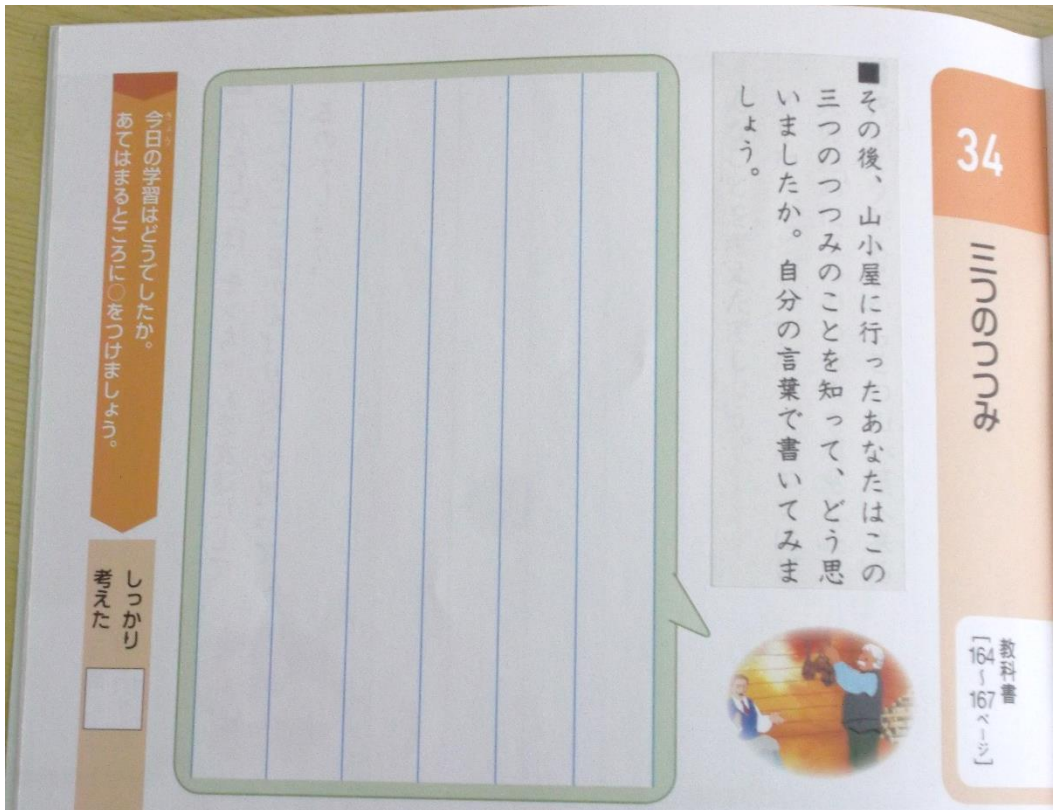 34
三つのつつみ
教科書
[164~167ページ]
■その後、山小屋に行ったあなたはこの
三つのつつみのことを知って、どう思
いましたか。自分の言葉で書いてみま
しょう。
今日の学習はどうでしたか。
あてはまるところに○をつけましょう。
しっかり
考えた